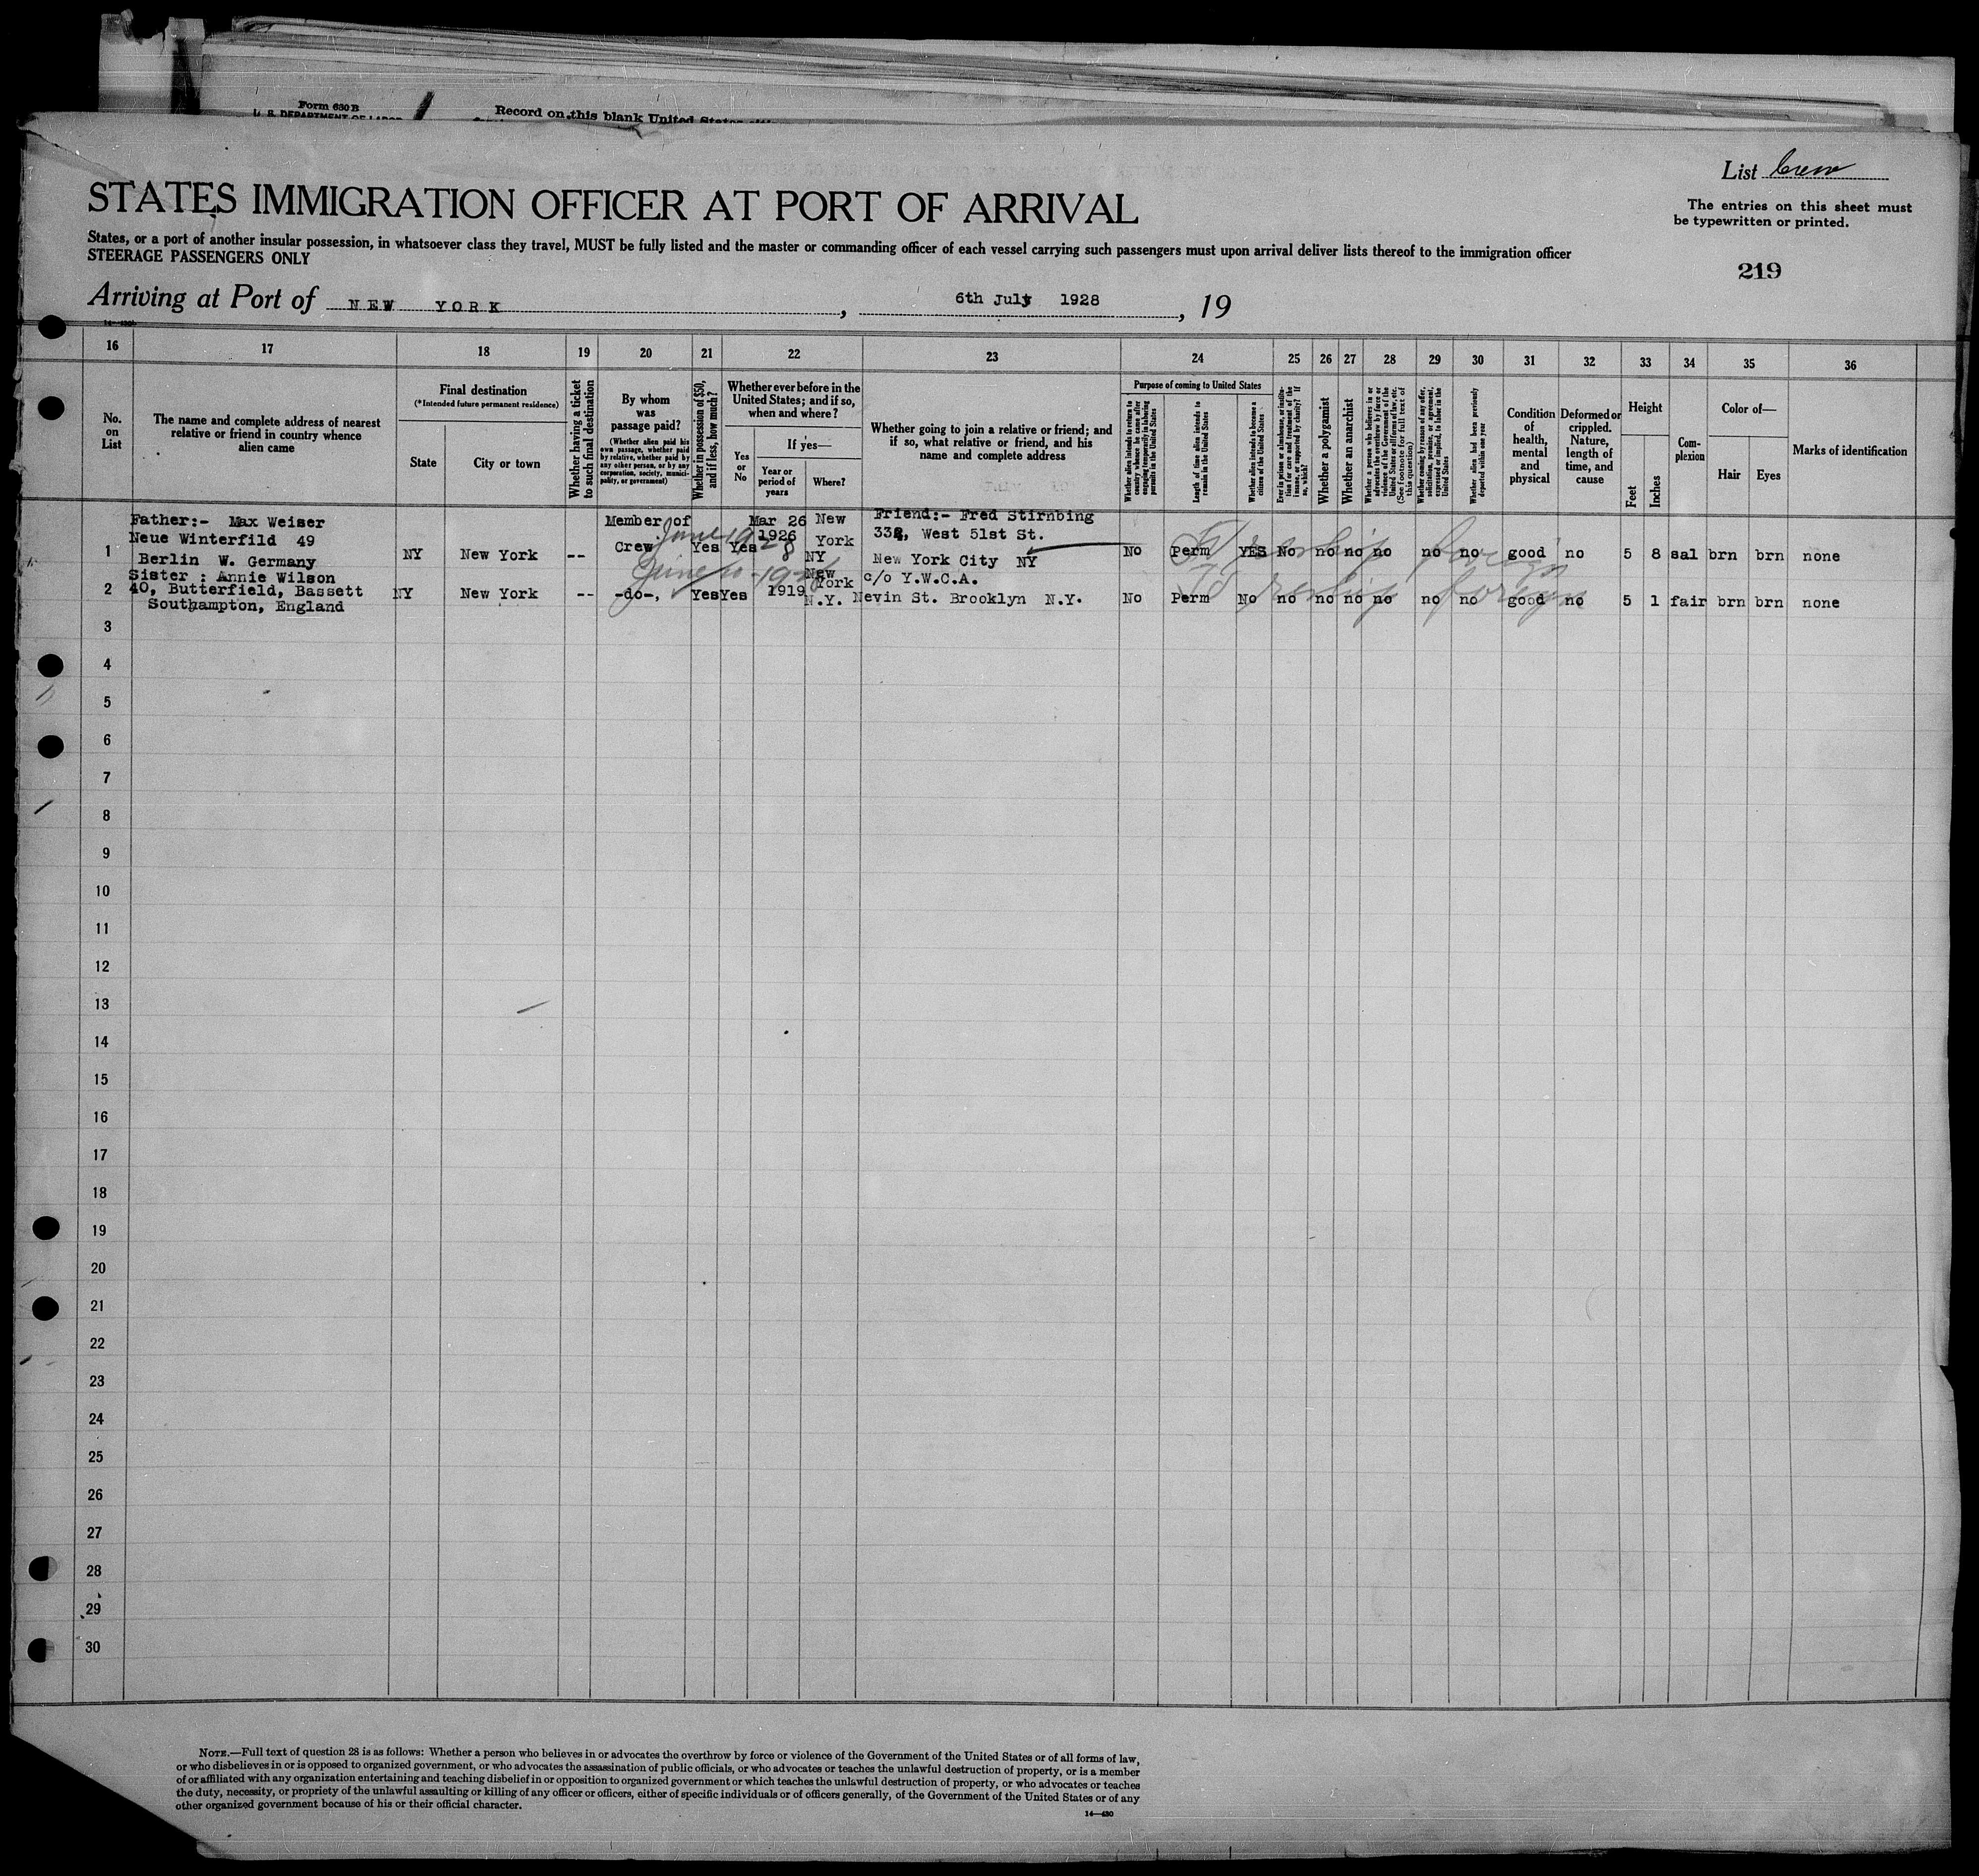 Form 630 B
U. S. DEPARTMENT OF LABOR
Record on this blank United States
List Crew
STATES IMMIGRATION OFFICER AT PORT OF ARRIVAL
The entries on this sheet must
be typewritten or printed.
States, or a port of another insular possession, in whatsoever class they travel, MUST be fully listed and the master or commanding officer of each vessel carrying such passengers must upon arrival deliver lists thereof to the immigration officer
STEERAGE PASSENGERS ONLY
219
Arriving at Port of NEW YORK, 6th July 1928, 19
16 17 18 19 20 21 22 23 24 25 26 27 28 29 30 31 32 33 34 35 36
No. on List
The name and complete address of nearest
relative or friend in country whence
alien came
Final destination
(*Intended future permanent residence)
State
City or town
Whether having a ticket
to such final destination
By whom
was
passage paid?
(Whether alien paid his
own passage, whether paid
by relative, whether paid by
any other person, or by any
corporation, society, munici-
pality, or government)
Whether in possession of $50,
and if less, how much?
Whether ever before in the
United States; and if so,
when and where?
Yes
or
No
If yes—
Year or
period of
years
Where?
Whether going to join a relative or friend; and
if so, what relative or friend, and his
name and complete address
Purpose of coming to United States
Whether alien intends to return to
country whence he came after
engaging temporarily in laboring
pursuits in the United States
Length of time alien intends to
remain in the United States
Whether alien intends to become a
citizen of the United States
Ever in prison or almshouse, or institu-
tion for care and treatment of the
insane, or supported by charity? If
so, which?
Whether a polygamist
Whether an anarchist
Whether a person who believes in or
advocates the overthrow by force or
violence of the Government of the
United States or all forms of law, etc.
(See footnote for full text of
this question)
Whether coming by reason of any offer,
solicitation, promise, or agreement,
expressed or implied, to labor in the
United States
Whether alien had been previously
deported within one year
Condition
of
health,
mental
and
physical
Deformed or
crippled.
Nature,
length of
time, and
cause
Height
Feet
Inches
Com-
plexion
Color of—
Hair
Eyes
Marks of identification
Father:- Max Weiser
Neue Winterfild 49
Berlin W. Germany
1 NY New York -- Member of
Crew Yes Yes Mar 26
1926 New
York
NY
Friend:- Fred Stirnbing
West 51st St.
New York City NY
No Perm YES No no no no no no good no 5 8 sal brn brn none
June 1928
To reship foreign
Sister : Annie Wilson
2 40, Butterfield, Bassett
Southampton, England
NY New York -- -do-, Yes Yes 1919 New
York
N.Y.
c/o Y.W.C.A.
Nevin St. Brooklyn N.Y.
No Perm No no no no no no no good no 5 1 fair brn brn none
To reship foreign
3
4
5
6
7
8
9
10
11
12
13
14
15
16
17
18
19
20
21
22
23
24
25
26
27
28
29
30
NOTE.—Full text of question 28 is as follows: Whether a person who believes in or advocates the overthrow by force or violence of the Government of the United States or of all forms of law,
or who disbelieves in or is opposed to organized government, or who advocates the assassination of public officials, or who advocates or teaches the unlawful destruction of property, or is a member
of or affiliated with any organization entertaining and teaching disbelief in or opposition to organized government or which teaches the unlawful destruction of property, or who advocates or teaches
the duty, necessity, or propriety of the unlawful assaulting or killing of any officer or officers, either of specific individuals or of officers generally, of the Government of the United States or of any
other organized government because of his or their official character.
14—430